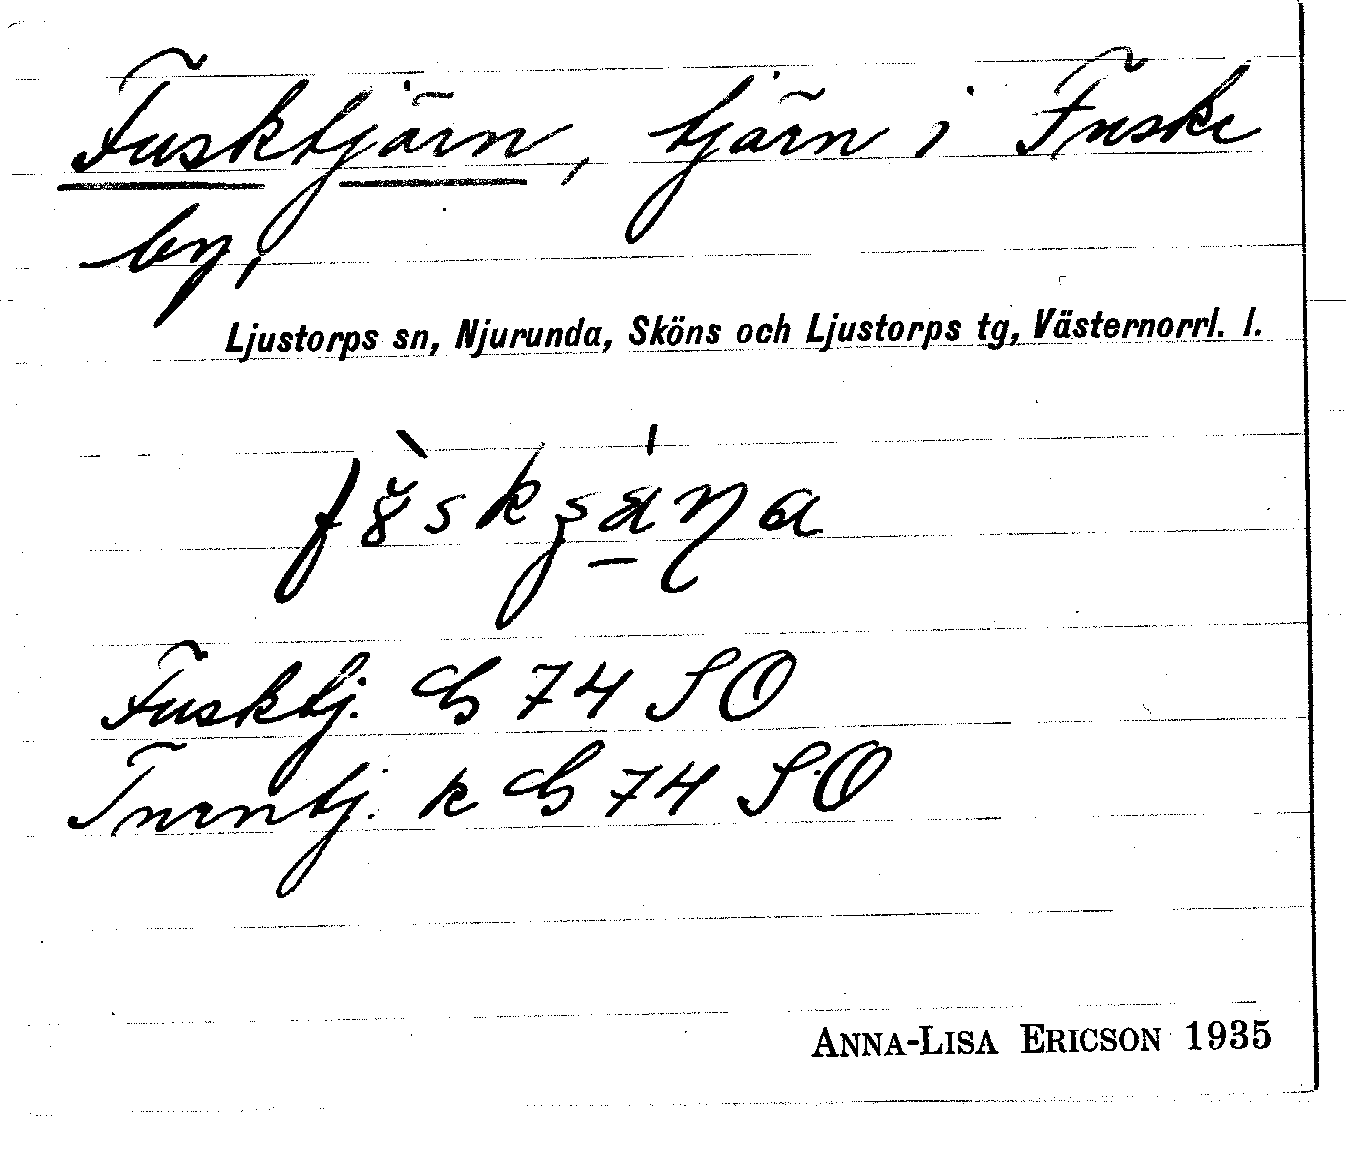 Fusktjärn, tjärn i Fuske
by,
Ljustorps sn, Njurunda, Sköns och Ljustorps tg, Västernorrl. l.
Fusktj. G 74 SO
Turntj. k G 74 SO
ANNA-LISA ERICSON 1935